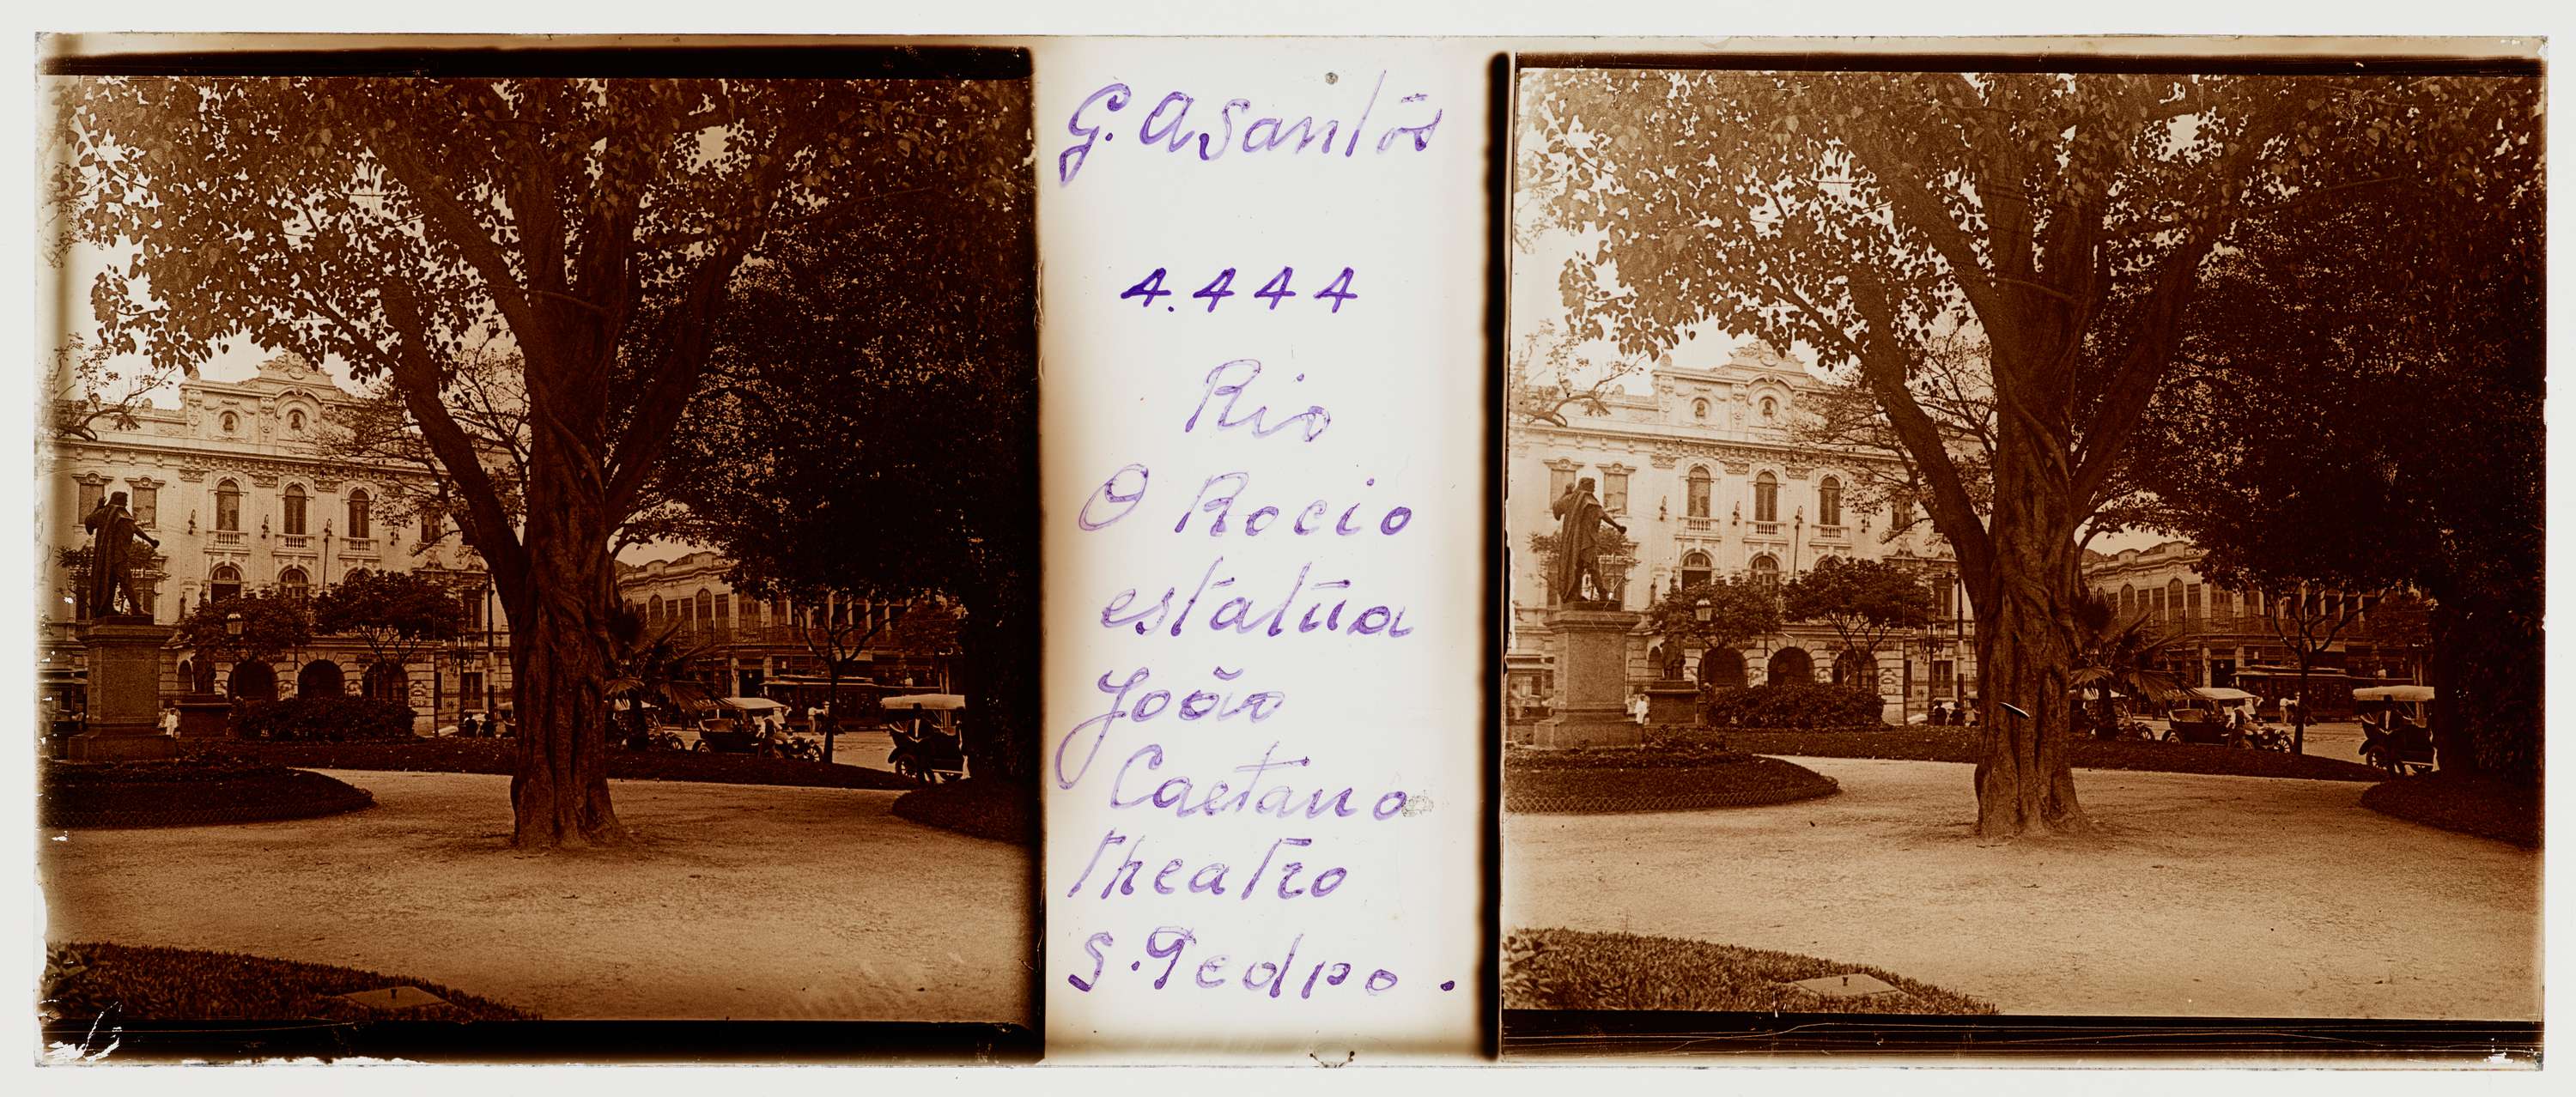 G. A Santos
4.444
Rio
O Rocio
estatua
João
Caetano
theatro
S. Pedro.